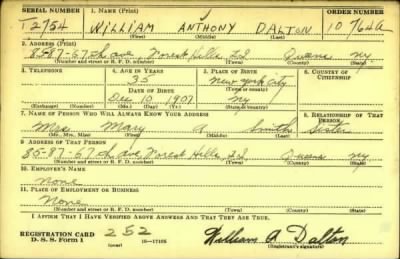 SERIAL NUMBER 1. NAME (Print) ORDER NUMBER
T2754 WILLIAM ANTHONY DALTON 10764a
(First) (Middle) (Last)
2. ADDRESS (Print)
8587-67th ave, Forest Hills LI Queens ny
(Number and street or R. F. D. number) (Town) (County) (State)
3. TELEPHONE 4. AGE IN YEARS 5. PLACE OF BIRTH 6. COUNTRY OF CITIZENSHIP
35 New York City
DATE OF BIRTH (Town or county)
Dec 10 1907 ny
(Exchange) (Number) (Mo.) (Day) (Yr.) (State or country)
7. NAME OF PERSON WHO WILL ALWAYS KNOW YOUR ADDRESS 8. RELATIONSHIP OF THAT PERSON
Mrs Mary A Smith Sister
(Mr., Mrs., Miss) (First) (Middle) (Last)
9. ADDRESS OF THAT PERSON
85-87-67th ave Forest Hills LI Queens ny
(Number and street or R. F. D. number) (Town) (County) (State)
10. EMPLOYER'S NAME
None
11. PLACE OF EMPLOYMENT OR BUSINESS
None
(Number and street or R. F. D. number) (Town) (County) (State)
I AFFIRM THAT I HAVE VERIFIED ABOVE ANSWERS AND THAT THEY ARE TRUE.
REGISTRATION CARD 252
D. S. S. Form 1 (over) William A Dalton
(Registrant's signature)